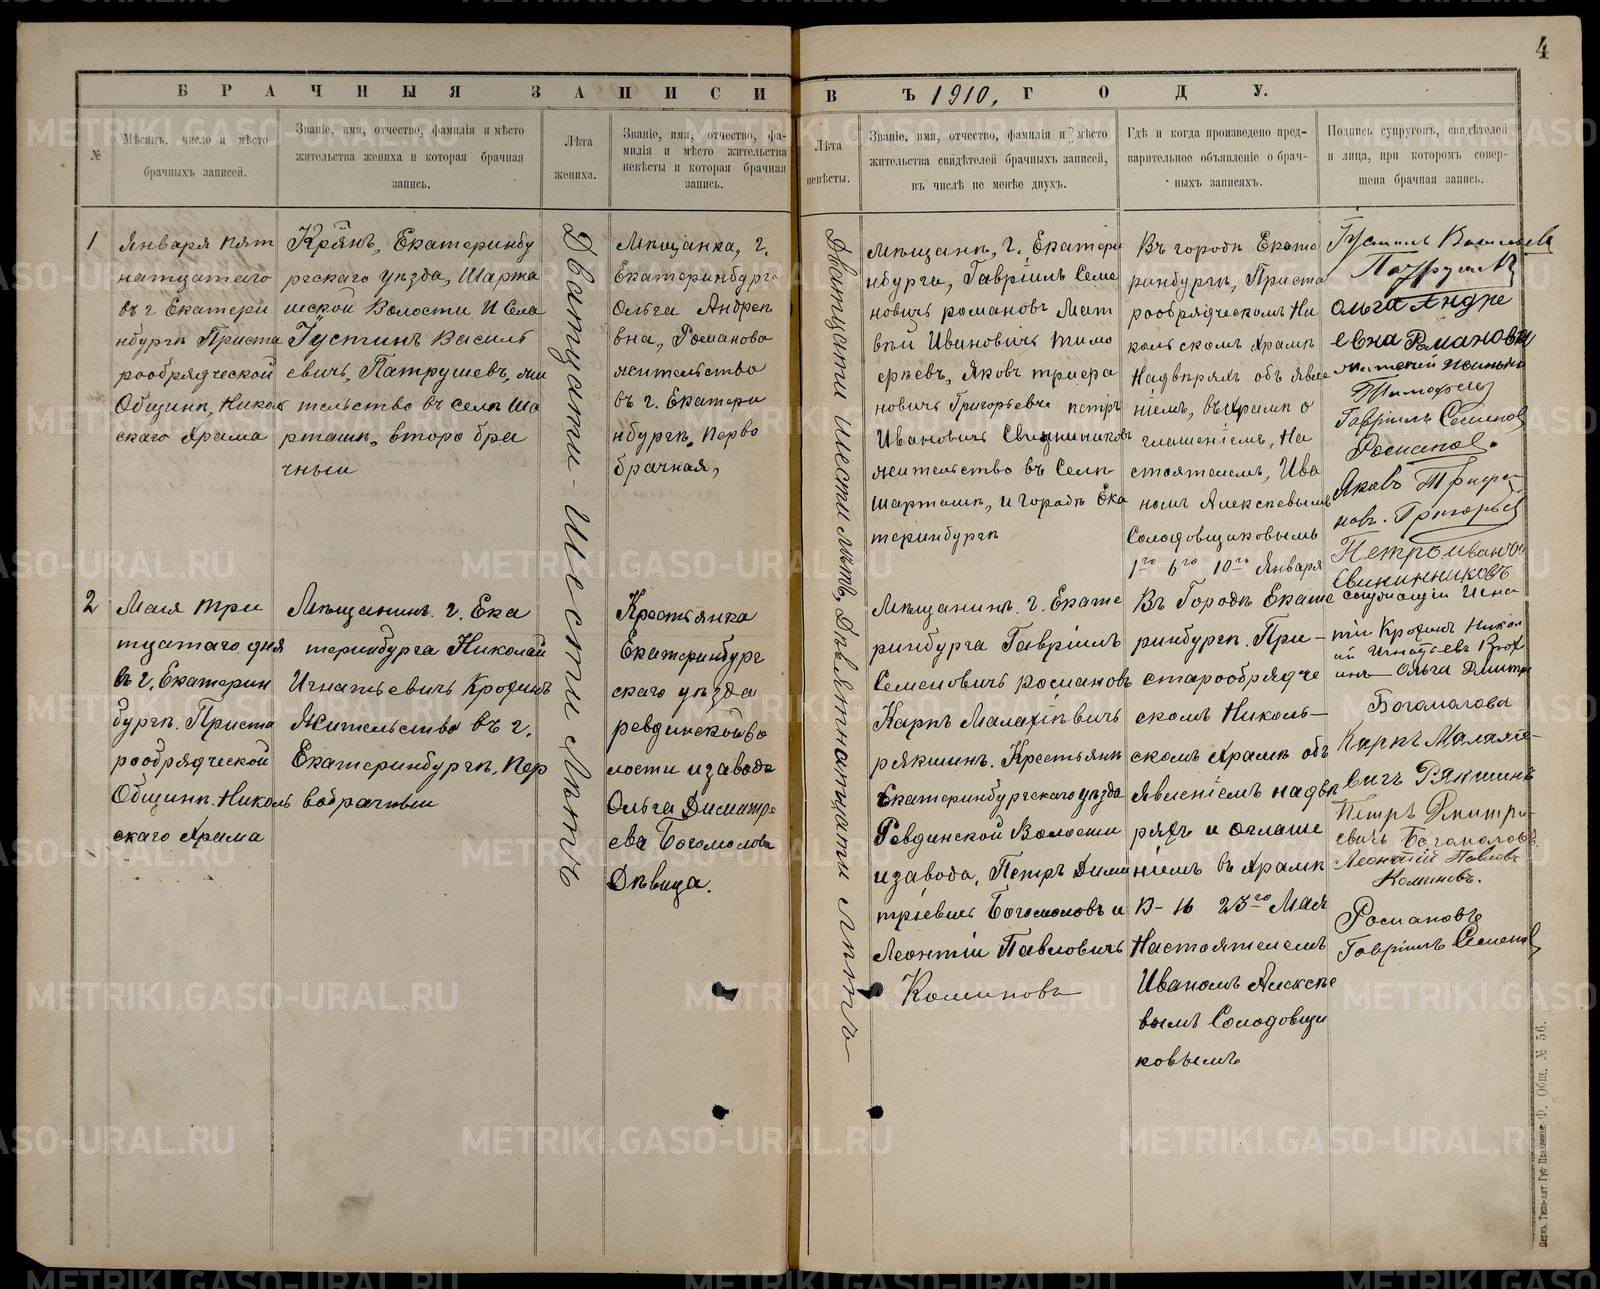 4
БРАЧНЫЯ ЗАПИСИ ВЪ 1910, ГОДУ.
№
Мѣсяцъ, число и мѣсто
брачныхъ записей.
Званіе, имя, отчество, фамилія и мѣсто
жительства жениха и которая брачная
запись.
Лѣта
жениха.
Званіе, имя, отчество, фа-
милія и мѣсто жительства
невѣсты и которая брачная
запись.
Лѣта
невѣсты.
Званіе, имя, отчество, фамилія и мѣсто
жительства свидѣтелей брачныхъ записей,
въ числѣ не менѣе двухъ.
Гдѣ и когда произведено пред-
варительное объявленіе о брач-
ныхъ записяхъ.
Подпись супруговъ, свидѣтелей
и лица, при которомъ совер-
шена брачная запись.
1
Января пят
натцатаго
въ г Екатери
нбургѣ Приста
рообрядческой
Общинѣ, Николь
скаго Храма
Екатеринбу
ргскаго уѣзда, Шарта
шской Волости И Села
Густинъ Василь
евичъ, Патрушевъ, жи
тельство въ селѣ Ша
рташѣ, второ бра
чный
Дватцати-Шести Лѣтъ
Мѣщанка, г.
Екатеринбурга
Ольга Андрее
вна, Романова
жительство
въ г. Екатери
нбургѣ, перво
брачная,
Дватцати шести лѣтъ, Девятнатцати лѣтъ
Мѣщанинъ, г. Екатери
нбурга, Гавріилъ Семе
новичъ романовъ Мат
вѣй Ивановичъ тимо
феевъ, Яковъ трифа
новичъ Григорьевъ петръ
Ивановичъ Свининниковъ
жительство въ Селѣ
шарташѣ, и городѣ Ека
теринбургѣ
Въ городѣ Екате
ринбургѣ, Приста
рообрядческомъ Ни
кольскомъ храмѣ
Надверяхъ объ явле
ніемъ, въ храмѣ о
глашеніемъ, На
стоятелемъ, Ива
номъ Алексѣевымъ
Солодовщиковымъ
1го 6го 10го Января
Густинъ Васильевъ
Патрушевъ
Ольга Андре
евна Романова
Тимофеевъ
Гавріилъ Семенов
Романовъ.
Яковъ Трифо
новъ. Григорьев
Петръ Иванъ
Свининниковъ
2
Мая три
тцатаго дня
въ г. Екатерин
бургѣ. Приста
рообрядческой
Общинѣ. Николь
скаго Храма
Мѣщанинъ. г. Ека
теринбурга Николай
Игнатьевичъ Крохинъ
Жительство въ г.
Екатеринбургѣ, Пер
вобрачный
Крестьянка
Екатеринбург
скаго уѣзда
ревдинской во
лости и завода
Ольга Димитр
ева Богомолова
Дѣвица.
Мѣщанинъ. г. Екате
ринбурга Гавріилъ
Семеновичъ романовъ
Карпъ Малахіевичъ
рякшинъ. Крестьянѣ
Екатеринбургскаго уѣзда
Ревдинской Волости
и завода, Петръ Дими
тріевичъ Богомоловъ и
Леонтіи Павловичъ
Коминовъ
Въ Городѣ Екате
ринбургѣ. При-
старообрядче
скомъ Николь-
скомъ храмѣ объ
явленіемъ надве
ряхъ и оглаше
ніемъ въ храмѣ
В- 16 23го Мая
Настоятелемъ
Иваномъ Алексѣе
вымъ Солодовщи
ковымъ
Игна
тіи Крохинъ Никол
ай Игнатьевъ Крох
инъ- Ольга Дмитр
Богомолова
Карпъ Малахіе-
вичъ Рякшинъ
Петръ Дмитрі-
евичъ Богомоловъ
Леонтій Павловъ
Коминовъ.
Романовъ
Гавріилъ Семенов
Перм. Типо-лит. Губ. Правленія. Ф. Общ. № 56.
METRIKI.GASO-URAL.RU